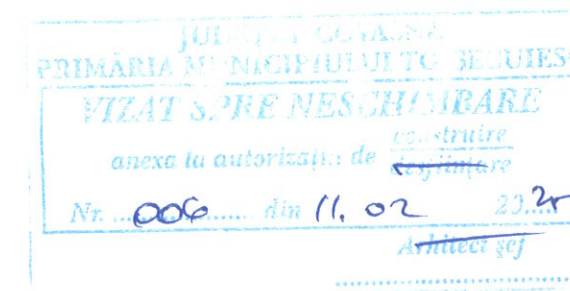 JUDEȚUL COVASNA
PRIMĂRIA MUNICIPIULUI TG. SECUIESC
VIZAT SPRE NESCHIMBARE
construire
anexa la autorizația de desființare
Nr. ....006.... din 11. 02 20....
Arhitect șef